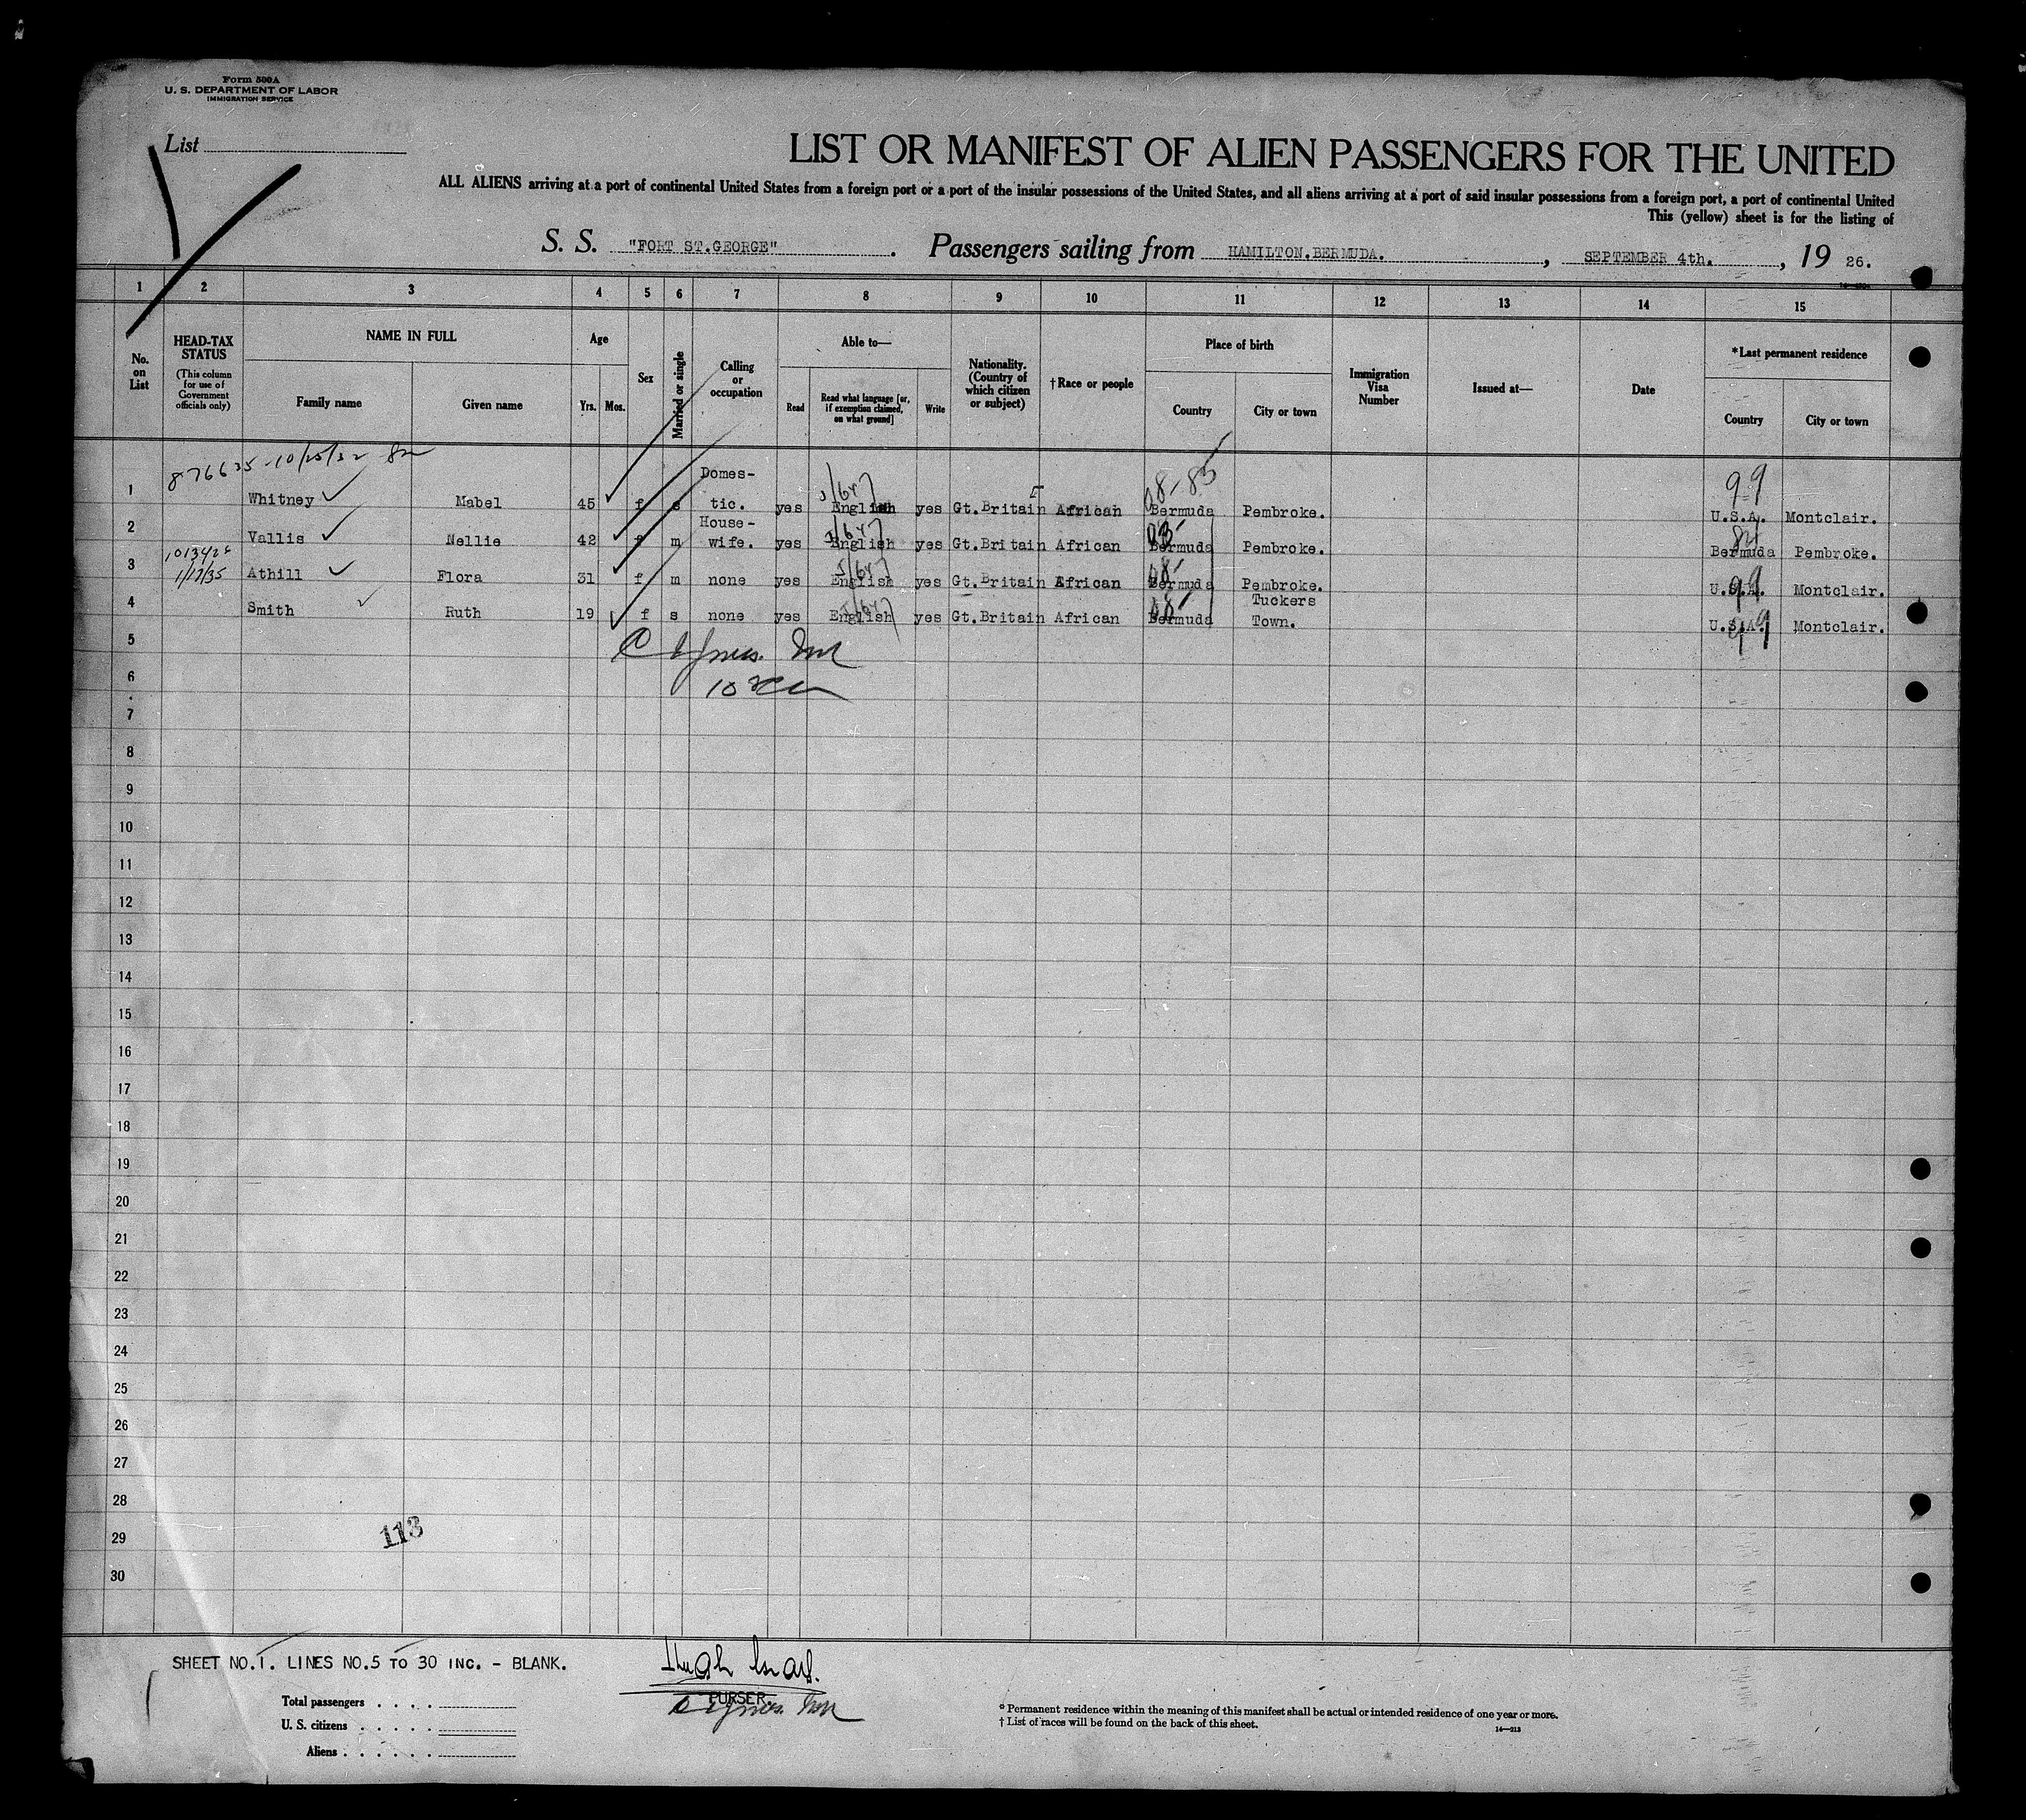 Form 500A
U. S. DEPARTMENT OF LABOR
IMMIGRATION SERVICE
List
LIST OR MANIFEST OF ALIEN PASSENGERS FOR THE UNITED
ALL ALIENS arriving at a port of continental United States from a foreign port or a port of the insular possessions of the United States, and all aliens arriving at a port of said insular possessions from a foreign port, a port of continental United
This (yellow) sheet is for the listing of
S. S. "FORT ST.GEORGE" . Passengers sailing from HAMILTON.BERMUDA. , SEPTEMBER 4th. , 19 26.
1 2 3 4 5 6 7 8 9 10 11 12 13 14 15
No. on List
HEAD-TAX STATUS
(This column for use of Government officials only)
NAME IN FULL
Family name Given name
Age
Yrs. Mos.
Sex
Married or single
Calling or occupation
Able to—
Read
Read what language [or, if exemption claimed, on what ground]
Write
Nationality. (Country of which citizen or subject)
†Race or people
Place of birth
Country City or town
Immigration Visa Number
Issued at—
Date
*Last permanent residence
Country City or town
876625-10/25/32
1 Whitney Mabel 45 f s Domes-tic. yes English yes Gt.Britain African Bermuda Pembroke. U.S.A. Montclair.
2 Vallis Nellie 42 f m House-wife. yes English yes Gt.Britain African Bermuda Pembroke. Bermuda Pembroke.
1/17/35
3 Athill Flora 31 f m none yes English yes Gt.Britain African Bermuda Pembroke. U.S.A. Montclair.
4 Smith Ruth 19 f s none yes English yes Gt.Britain African Bermuda Tuckers Town. U.S.A. Montclair.
5
6
7
8
9
10
11
12
13
14
15
16
17
18
19
20
21
22
23
24
25
26
27
28
29
30
113
SHEET NO.1. LINES NO.5 TO 30 INC. - BLANK.
PURSER.
Total passengers
U. S. citizens
Aliens
* Permanent residence within the meaning of this manifest shall be actual or intended residence of one year or more.
† List of races will be found on the back of this sheet.
14—213